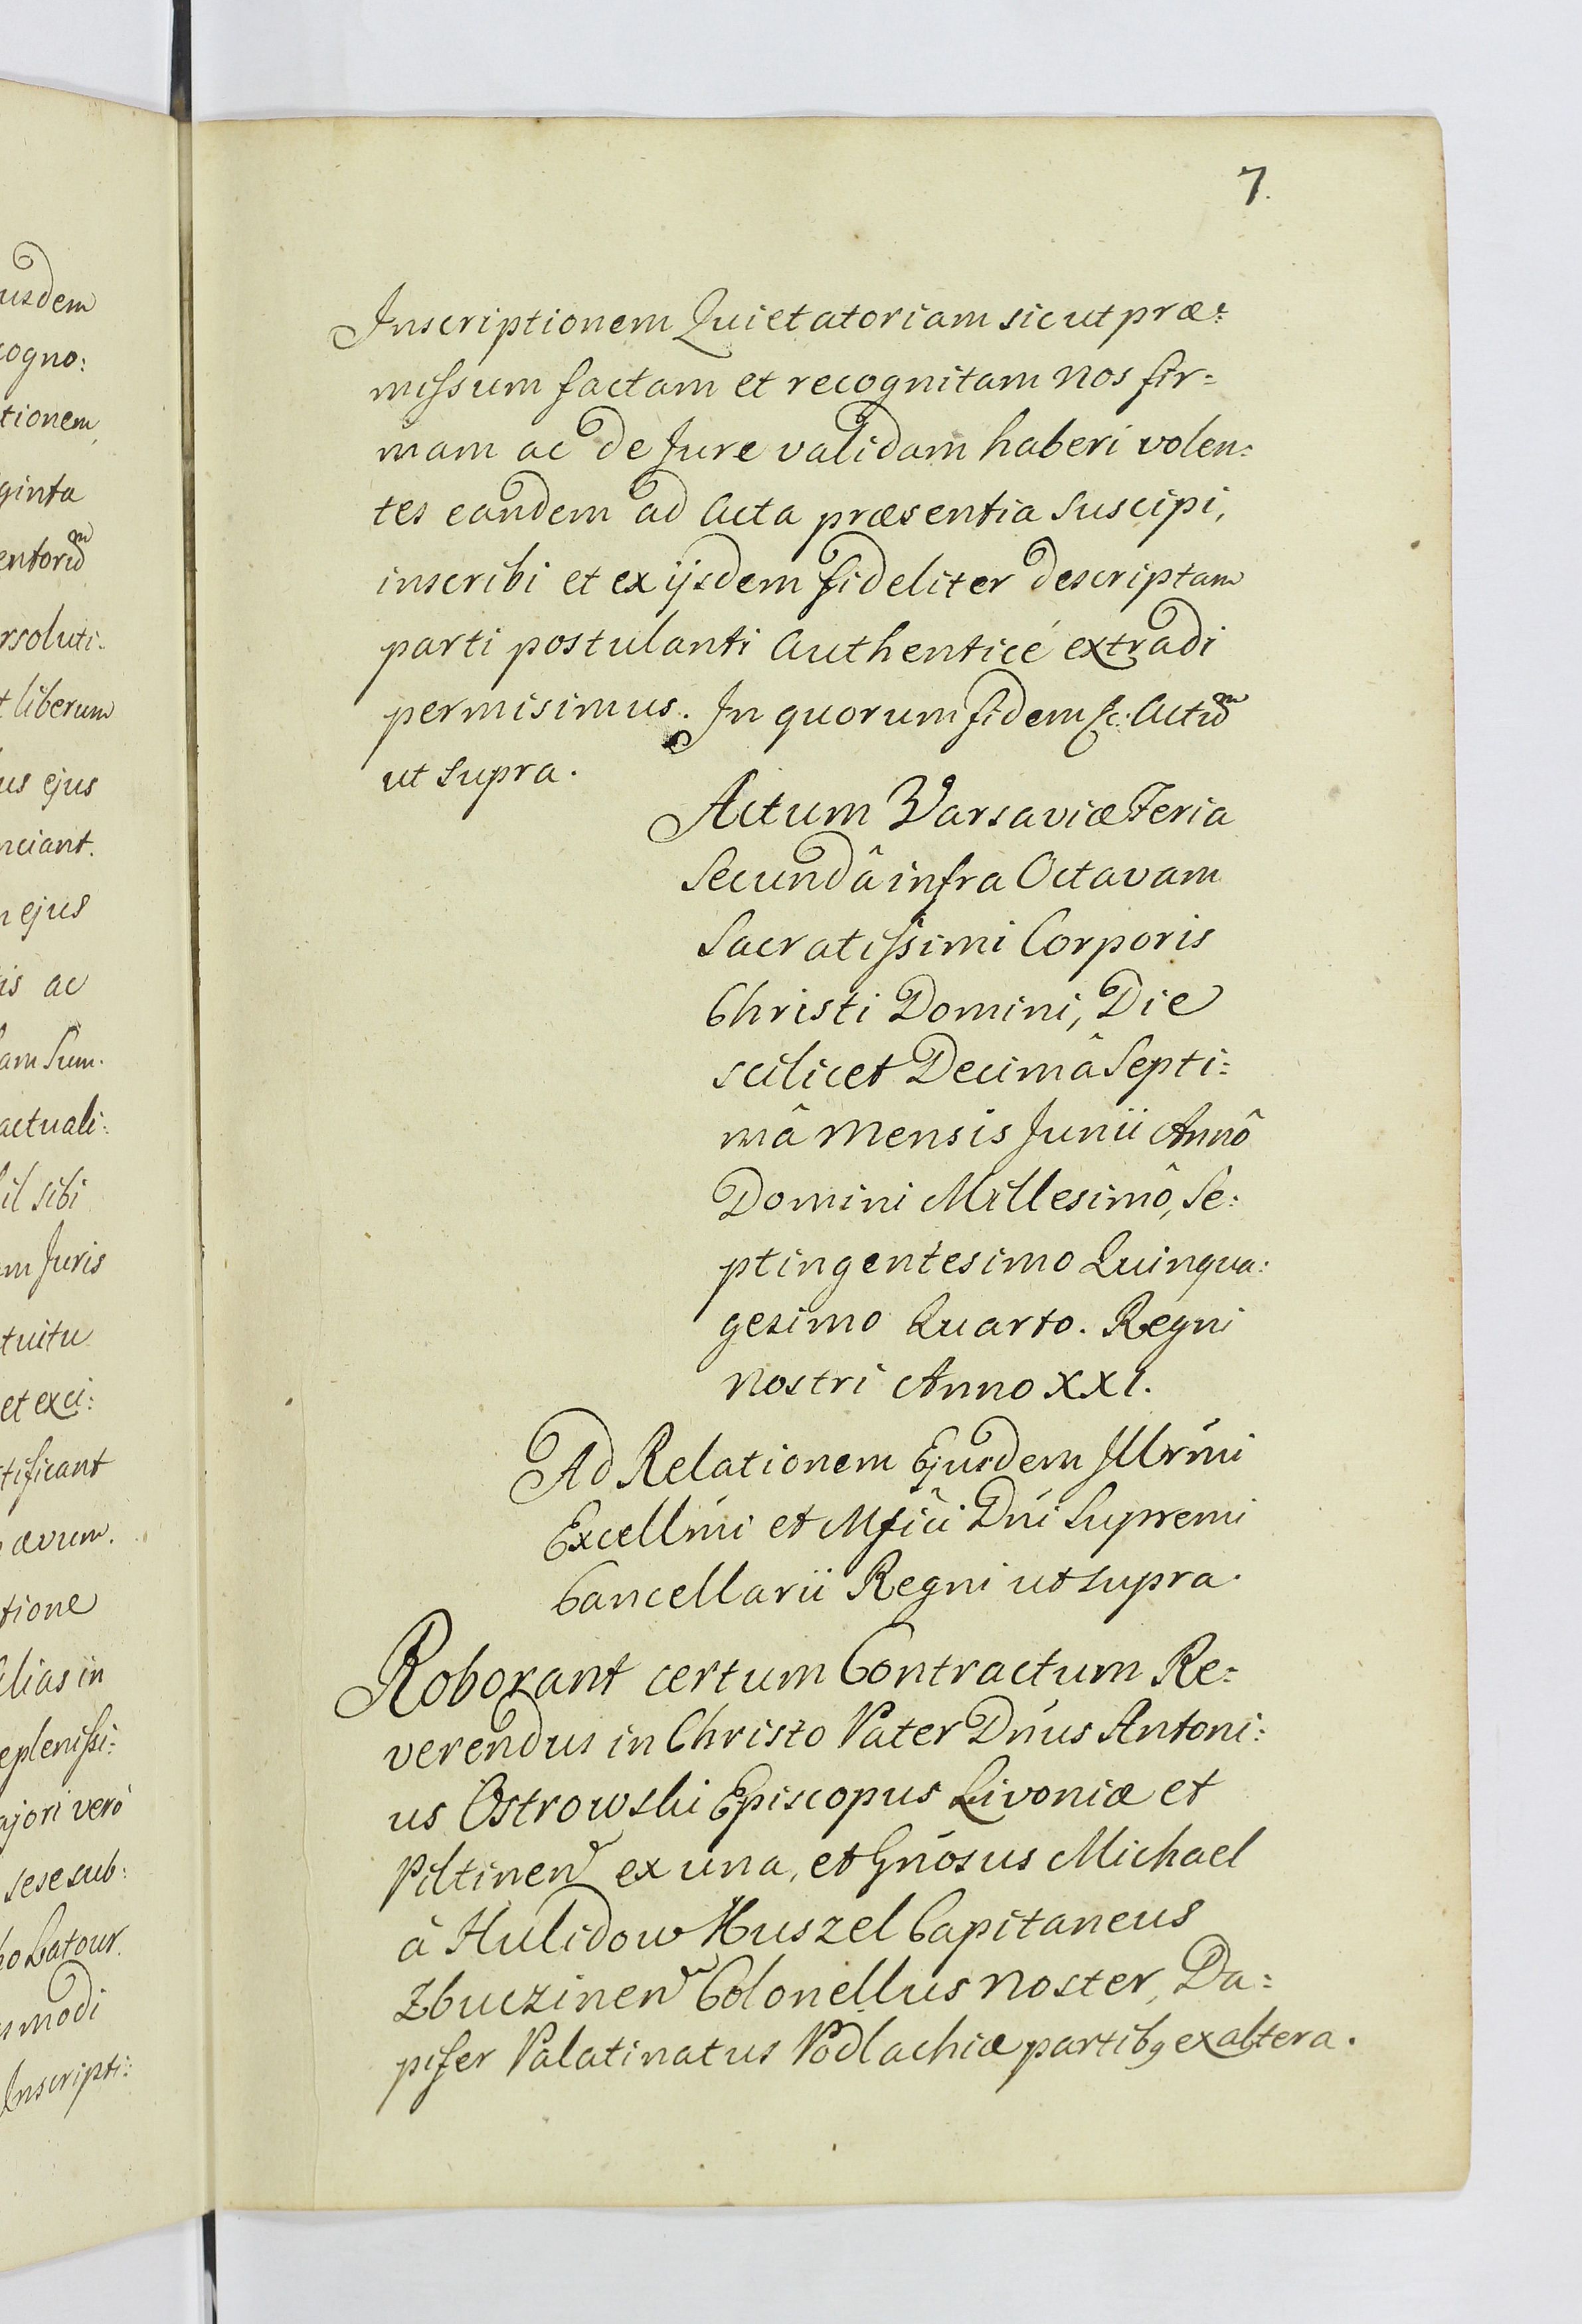 usdem
cogno:
tionem
ginta
rsoluti:
t liberum
us ejus
nciant.
n ejus
is ac
am Sum:
actuali:
il sibi
m Juris
tuitu
et exci:
tificant
ævum.
tione
alias in
eplenissi:
ajori verò
sese sub:
modi
Inscripti:
7.
Inscriptionem Quietatoriam sicut præ:
missum factam et recognitam nos fir=
mam ac de Jure validam haberi volen=
tes eandem ad Acta præsentia suscipi,
inscribi et ex ijsdem fideliter descriptam
parti postulanti Authenticé extradi
permisimus. In quorum fidem &c: Actũ
ut supra.
Actum Varsaviæ Feria
Secundâ infra Octavam
Sacratissimi Corporis
Christi Domini, Die
scilicet Decimâ Septi=
mâ Mensis Junii Annô
Domini Millesimô, Se:
ptingentesimo Quinqua:
gesimo Quarto. Regni
Nostri Anno XXI.
Ad Relationem Ejusdem Illrm̃i
Excellm̃i et Mfici Dn̄i Supremi
Cancellarii Regni ut supra.
Roborant certum Contractum Re=
verendus in Christo Pater Dn̄us Antoni:
us Ostrowski Episcopus Livoniæ et
Piltinen̄ ex una, et Gn̄osus Michael
à Hulidow Huszel Capitaneus
Zbuczinen̄ Colonellus Noster, Da=
pifer Palatinatus Podlachiæ partibq ex altera.